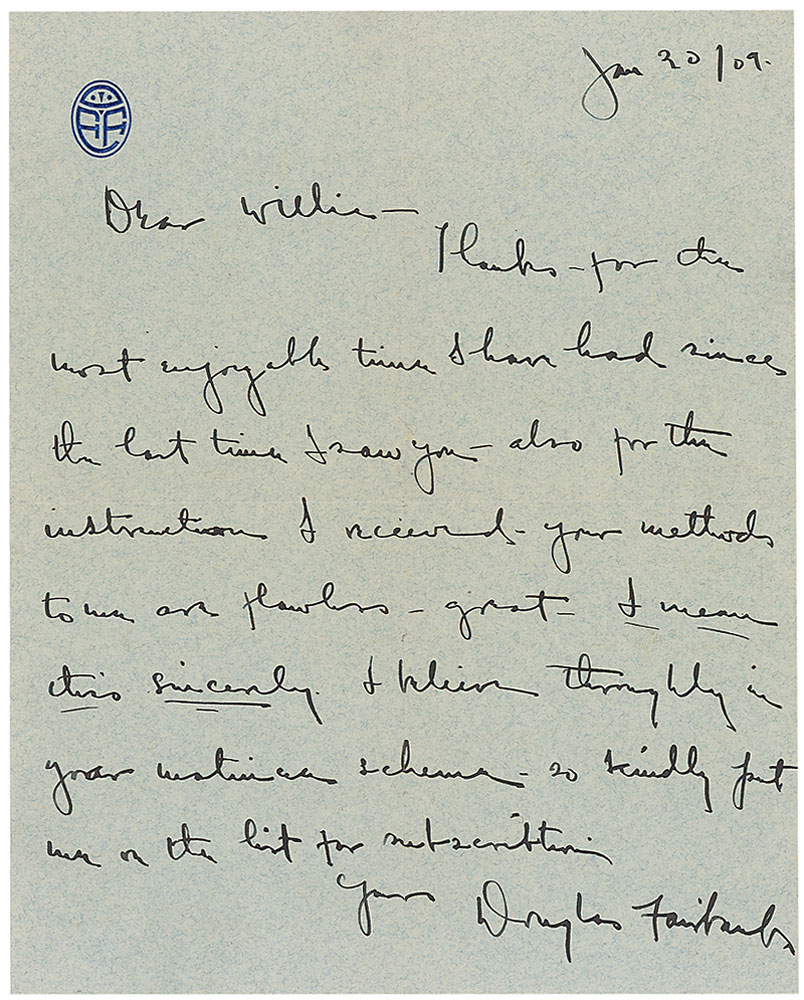 Jan 20/09.
Dear Willie —
Thanks - for the
most enjoyable time I have had since
the last time I saw you - also for the
instructions I recieved - your methods
to me are flawless - great - I mean
this sincerely. I believe throughly in
your matinee scheme - so kindly put
me on the list for subscribtion
Yours Douglas Fairbanks